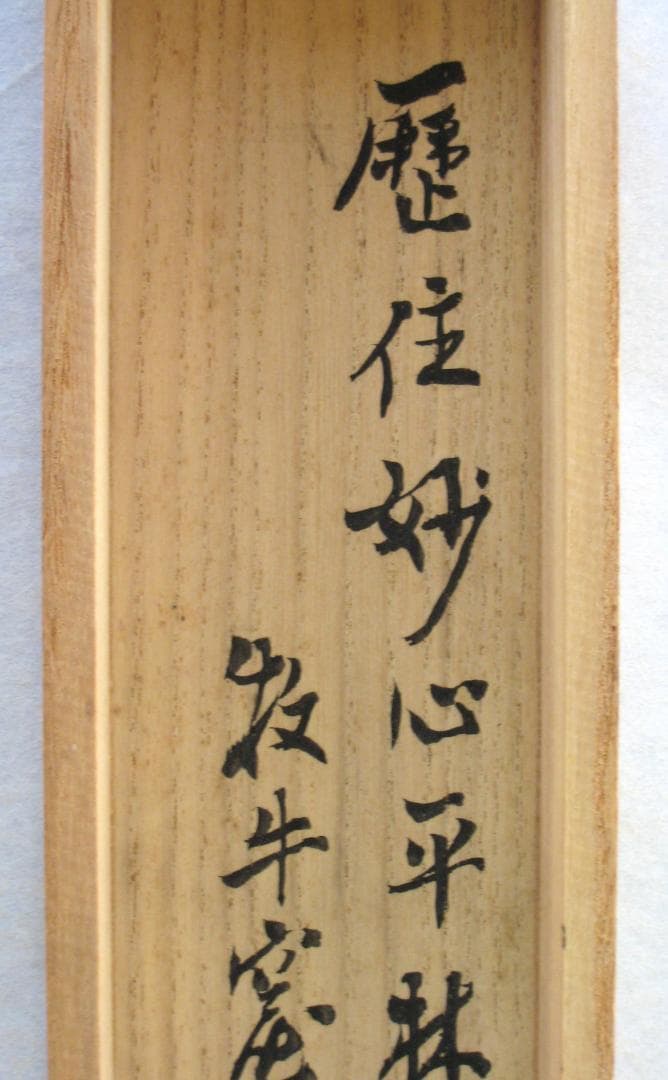 歴住妙心平林
牧牛窟